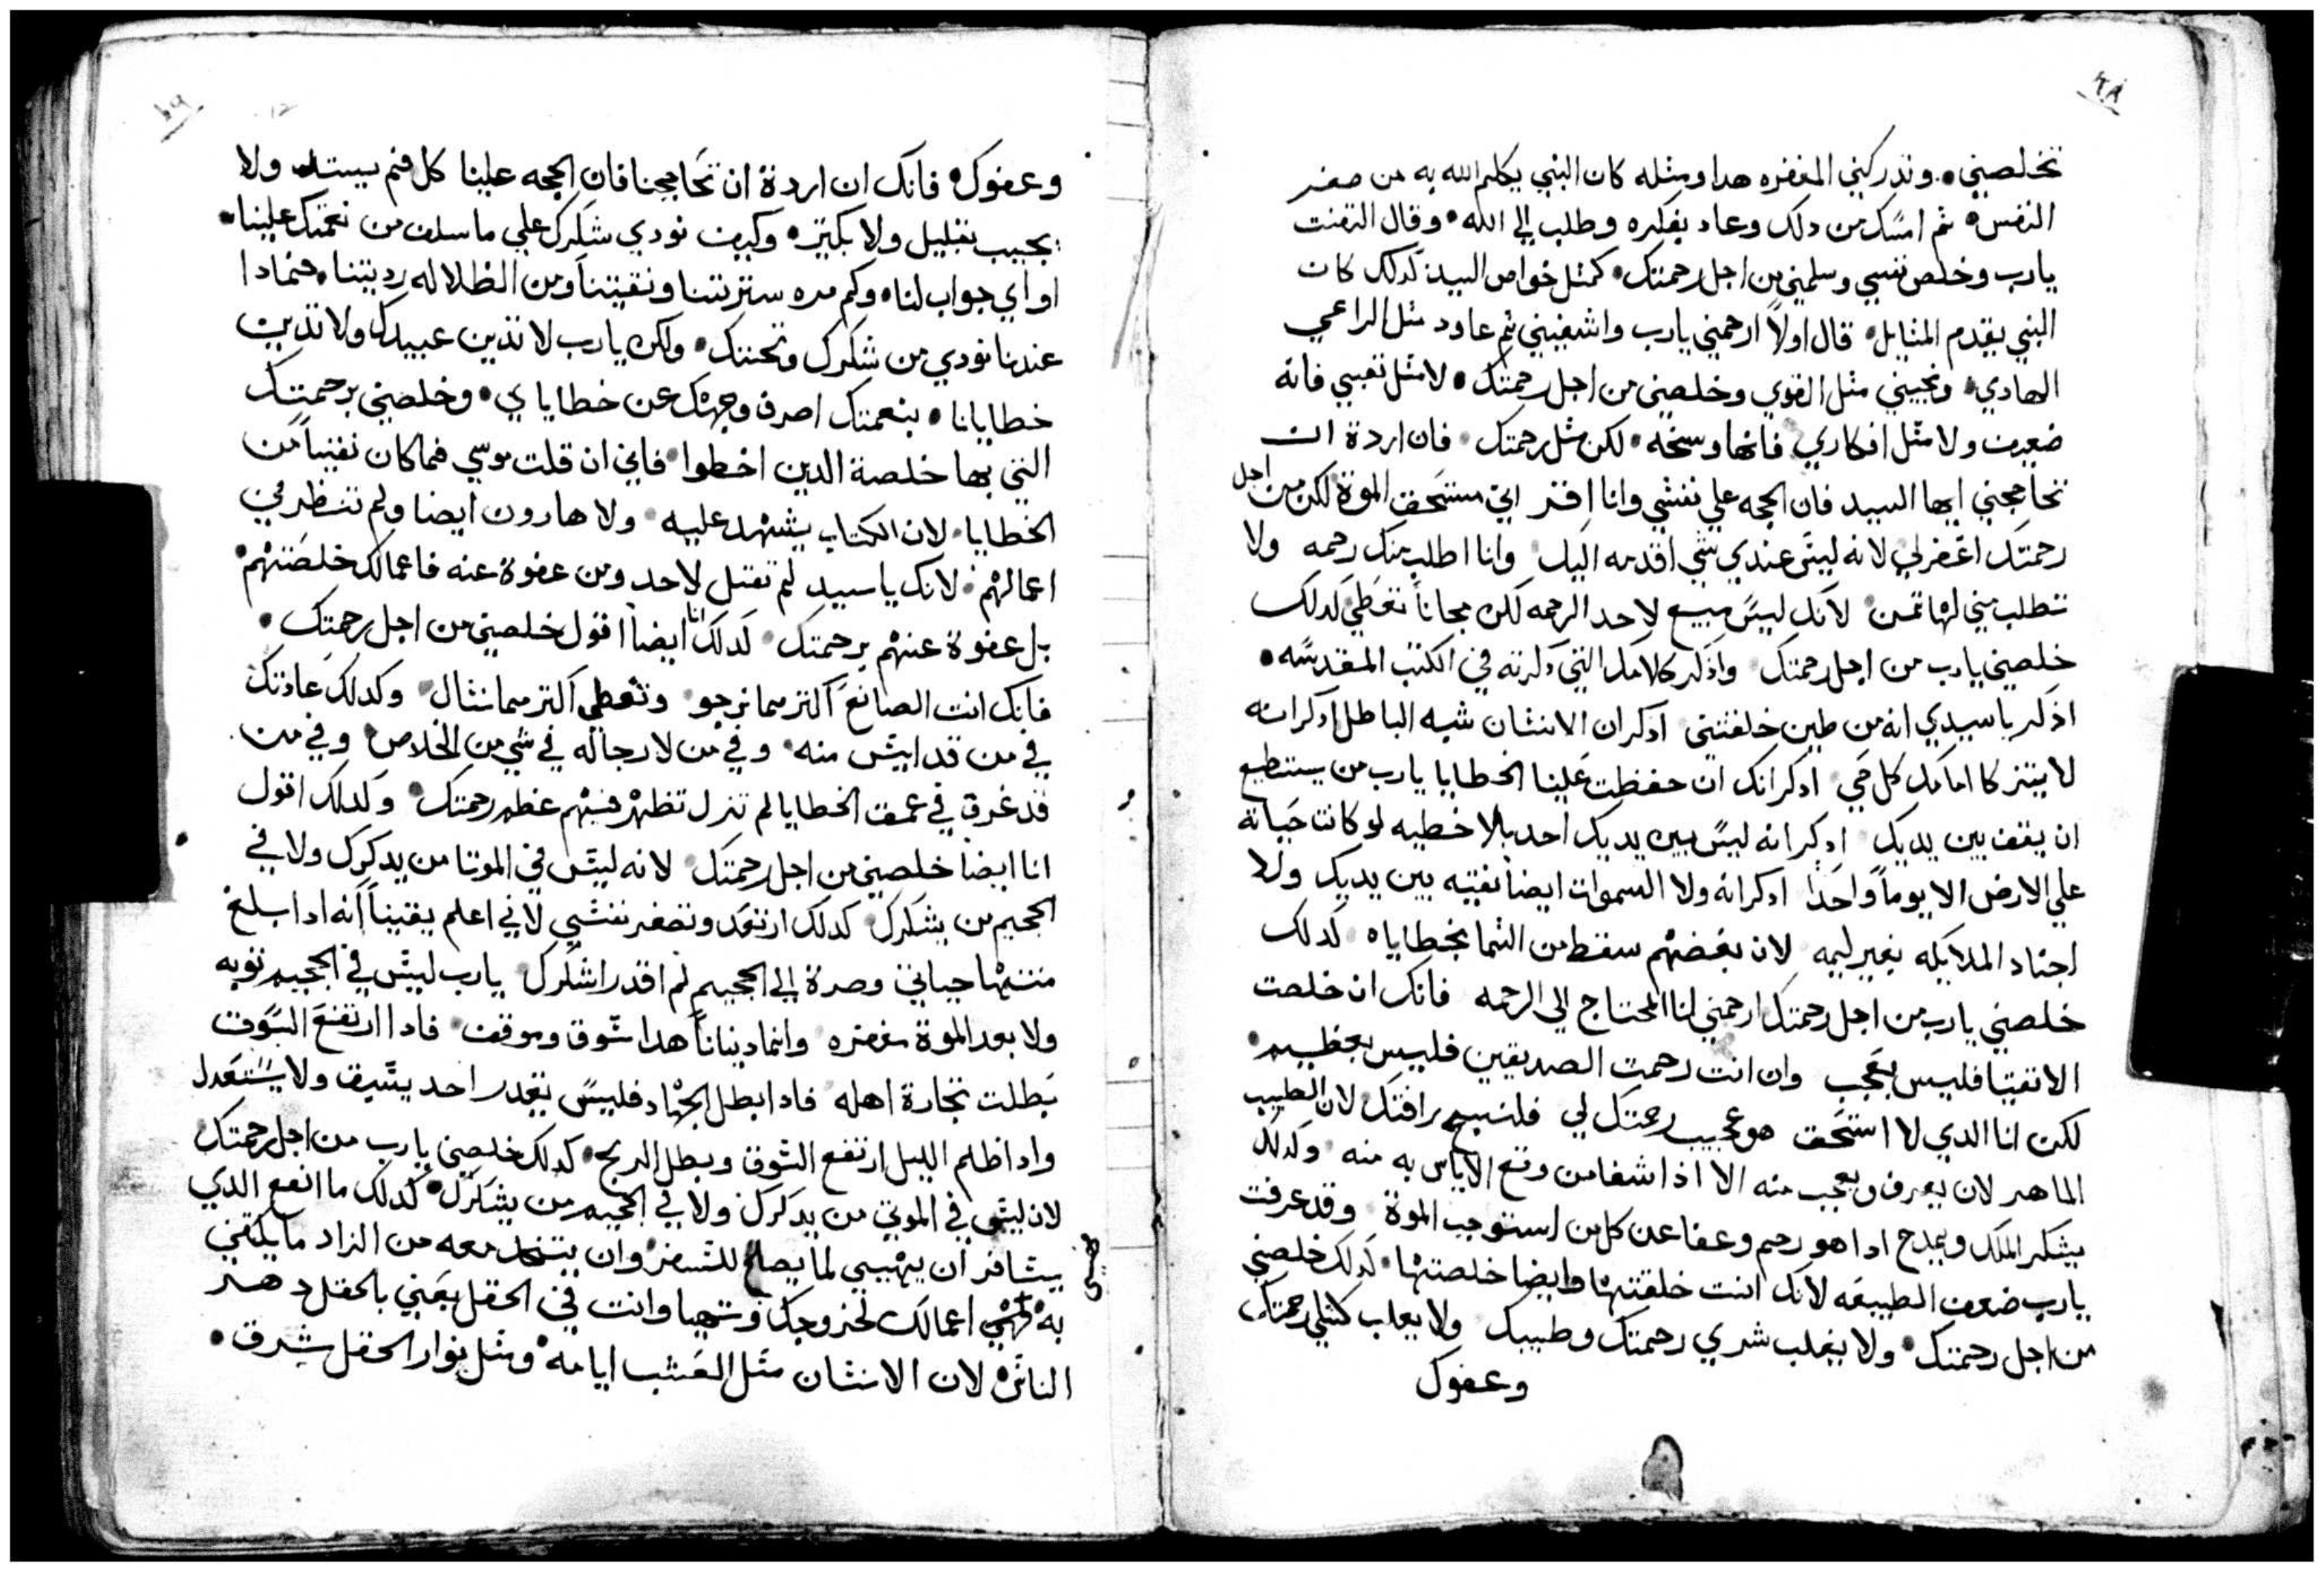 تخلصيني • وتدركني المغفره هدا ومثله كان النبي يكلم الله به من صغر
النفس • ثم امسك من دلك وعاد بفكره وطلب الي الله • وقال التفت
يارب وخلص نفسي وسلمني من اجل رحمتك • كمثل خواص السيد كدلك كان
النبي يقدم المثايل • قال اولاً ارحمني يارب واشفيني ثم عاود مثل الراعي
الهادي • ونجيني مثل القوي وخلصني من اجل رحمتك • لا مثل تعبي فانه
ضعيف ولا مثل افكاري فانها وسخه • لكن مثل رحمتك • فان اردة ان
تحاججني ايها السيد فان الحجه علي نفسي وانا اقر اني مستحق الموة لكن من اجل
رحمتك اغفرلي لانه ليس عندي شي اقدمه اليك وانا اطلب منك رحمه ولا
تطلب مني لها تمن • لانك ليس مبيع لاحد الرحمه لكن مجاناً تعطي كدلك
خلصني يارب من اجل رحمتك واذكر كلامك التي دكرته في الكتب المقدسه •
اذكر ياسيدي انه من طين خلقتني ادكر ان الانسان شبه الباطل ادكر انه
لا يتزكا امامك كل حي ادكر انك ان حفظت علينا الخطايا يارب من يستطيع
ان يقف بين يديك ادكر انه ليس بين يديك احد بلا خطيه لو كانت حياته
علي الارض الا يوماً واحدا ادكر انه ولا السموات ايضا نقيه بين يديك ولا
اجناد الملايكه بغير ليمه لان بعضهم سقط من السما بخطاياه كدلك
خلصني يارب من اجل رحمتك ارحمني انا المحتاج الي الرحمه فانك ان خلصت
الاتقيا فليس بعجب وان انت رحمت الصديقين فليس بعظيم •
لكن انا الدي لا استحق هو عجيب رحمتك لي فلتسبح رافتك لان الطبيب
الماهر لان يعرف ويعجب منه الا اذا شفا من وقع الاياس به منه وكدلك
يشكر الملك ويمدح ادا هو رحم وعفا عن كل من استوجب الموة وقد عرفت
يارب ضعف الطبيعه لانك انت خلقتها وايضا خلصتها • كدلك خلصني
من اجل رحمتك • ولا يغلب شري رحمتك وطيبك ولا يغلب رحمتك
وعفوك
وعفوك • فانك ان اردة ان تحاججنا فان الحجه علينا كل فم يستد ولا
يجيب بقليل ولا بكتير • وكيف نودي شكرك علي ما سلف من نعمتك علينا •
او اي جواب لنا • وكم مره سترتنا ونقيتنا ومن الظلاله رديتنا • فمادا
عندنا نودي من شكرك وتحننك • ولكن يارب لا تدين عبيدك ولا تدين
خطايانا • بنعمتك اصرف وجهك عن خطاياي • وخلصني برحمتك
التي بها خلصة الدين اخطوا • فاني ان قلت موسي فما كان نقياً من
الخطايا • لان الكتاب يشهد عليه • ولا هارون ايضا ولم تنظر في
اعمالهم • لانك ياسيد لم تقتل لاحد ومن عفوة عنه فاعمالك خلصتهم •
بل عفوة عنهم برحمتك • كدلك انا ايضاً اقول خلصني من اجل رحمتك •
فانك انت الصانع اكتر مما نرجو وتعطي اكتر مما نسال • وكدلك عادتك
في من قد ايس منه • وفي من لا رجا له في شي من الخلاص • وفي من
قد غرق في عمق الخطايا لم تزل تظهر فيهم عظم رحمتك • وكدلك اقول
انا ايضا خلصني من اجل رحمتك لانه ليس في الموتا من يدكرك ولا في
الجحيم من يشكرك كدلك ارتعد وتصغر نفسي لاني اعلم يقيناً انه ادا بلغ
منتها حياتي وصرة الي الجحيم لم اقدر اشكرك يارب ليس في الجحيم توبه
ولا بعد الموة مغفره وانما دنيانا هدا سوق وموقف • فادا ارتفع السوق
بطلت تجارة اهله • فادا بطل الجهاد فليس يقدر احد يسيف ولا يستعدل
وادا ظلم الليل ارتفع السوق وبطل الربح • كدلك خلصني يارب من اجل رحمتك
لان ليس في الموتي من يدكرك ولا في الجحيم من يشكرك • كدلك ما انفع الدي
يسافر ان يهيي لما يصلح للسفر وان يتخد معه من الزاد ما يكفي
به • فهيي اعمالك لخروجك وتهيا وانت في الحقل يعني بالحقل دهر
الناس • لان الانسان مثل العشب ايامه • ومثل نوار الحقل شرق •